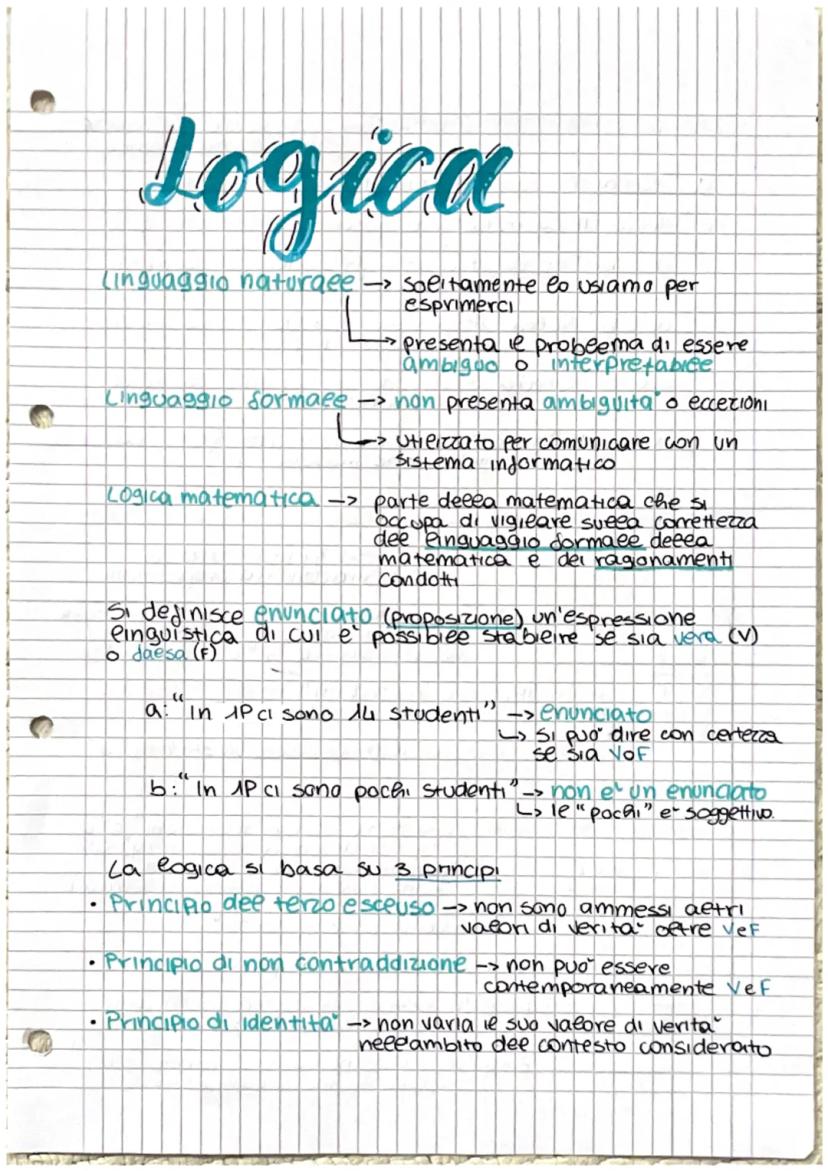 Logica
Linguaggio naturale → solitamente lo usiamo per
esprimerci
→ presenta il problema di essere
ambiguo o interpretabile
Linguaggio formale → non presenta ambiguità o eccezioni
→ utilizzato per comunicare con un
sistema informatico
Logica matematica → parte della matematica che si
occupa di vigilare sulla correttezza
del linguaggio formale della
matematica e dei ragionamenti
condotti
Si definisce enunciato (proposizione) un'espressione
linguistica di cui è possibile stabilire se sia vera (V)
o falsa (F)
a: "In 1P ci sono 14 studenti" → enunciato
↳ si può dire con certezza
se sia VoF
b: "In 1P ci sono pochi studenti" → non è un enunciato
↳ il "pochi" è soggettivo.
La logica si basa su 3 principi
• Principio del terzo escluso → non sono ammessi altri
valori di verità oltre VeF
• Principio di non contraddizione → non può essere
contemporaneamente VeF
• Principio di identità → non varia il suo valore di verità
nell'ambito del contesto considerato